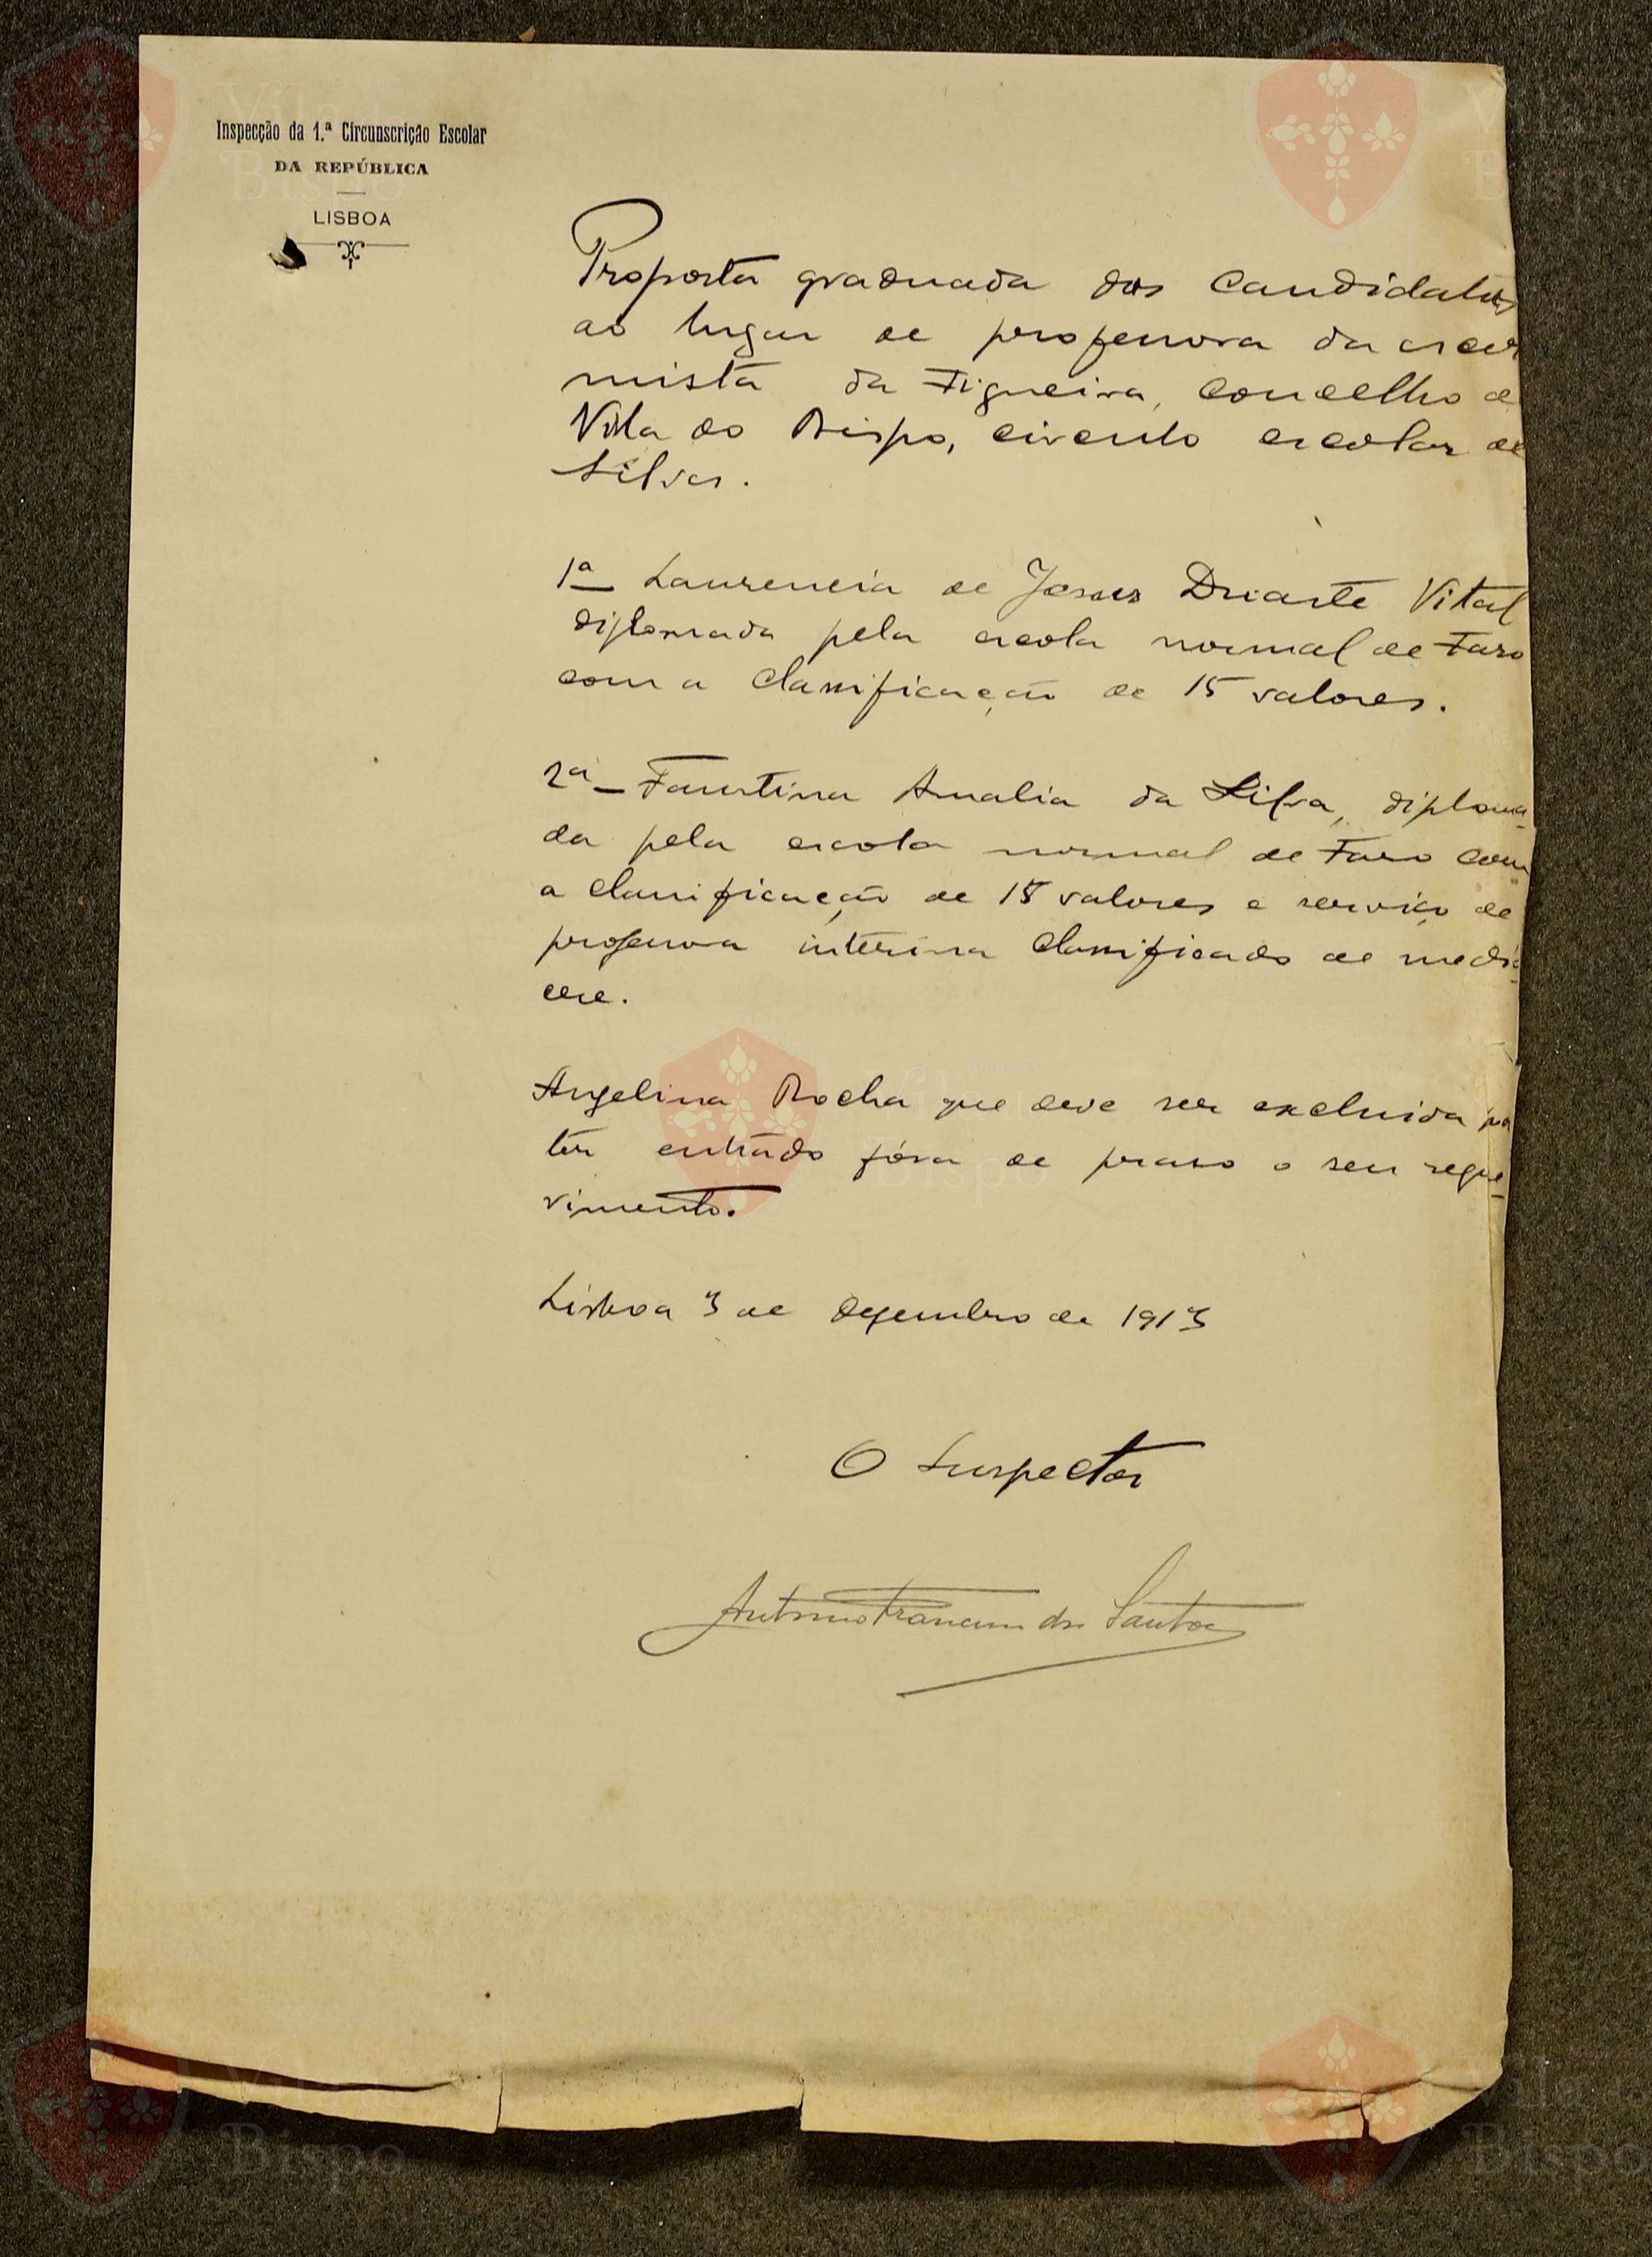 Inspecção da 1.ª Circunscrição Escolar
DA REPÚBLICA
LISBOA
Proposta graduada dos candidatos
ao lugar de professora da escol
mista da Figueira, concelho de
Vila do Bispo, circulo escolar de
Silves.
1ª Laurencia de Jesus Duarte Vital
diplomada pela escola normal de Faro
com a classificação de 15 valores.
2ª Faustina Amalia da Silva, diploma-
da pela escola normal de Faro com
a classificação de 15 valores e serviço de
professora interina classificado de medio-
cre.
Angelina Rocha que deve ser excluida por
ter entrado fóra de praso o seu reque-
rimento.
Lisboa 3 de Dezembro de 1913
O Inspector
Antonio Francisco dos Santos
Vila do Bispo